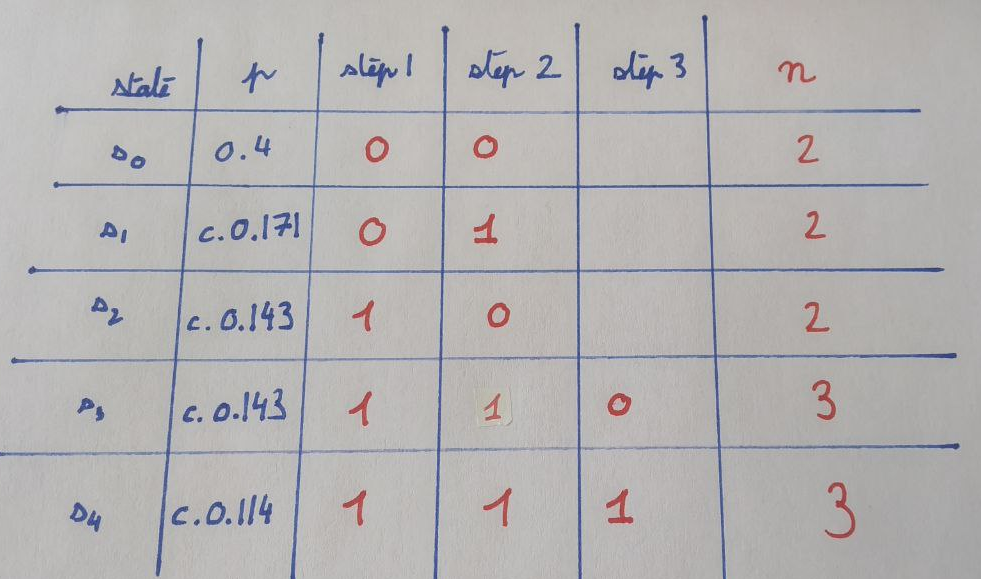 state p step 1 step 2 step 3 n
s0 0.4 0 0 2
s1 c.0.171 0 1 2
s2 c.0.143 1 0 2
s3 c.0.143 1 1 0 3
s4 c.0.114 1 1 1 3